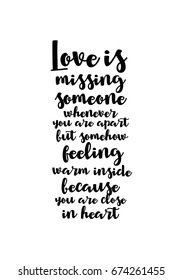 Love is
missing
someone
whenever
you are apart
but somehow
feeling
warm inside
because
you are close
in heart
shutterstock.com · 674261455